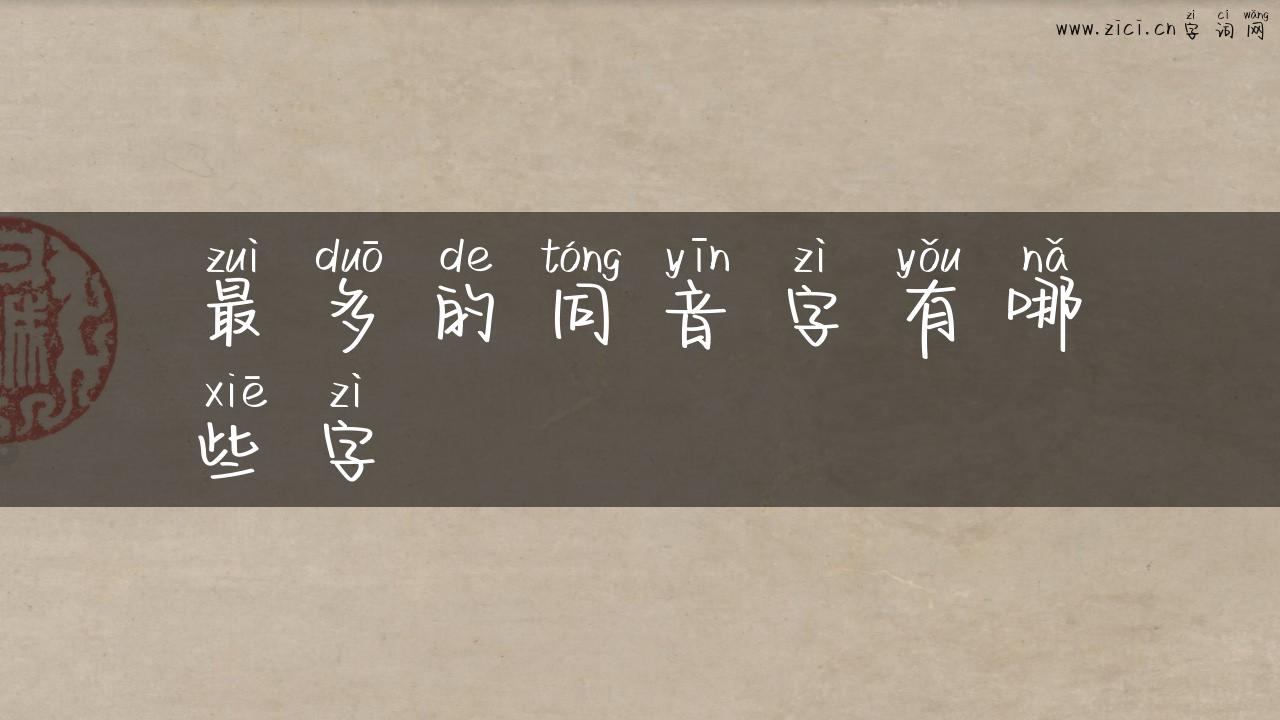 zì cí wǎng
www.zici.cn 字词网
zuì duō de tóng yīn zì yǒu nǎ
最多的同音字有哪
xiē zì
些字